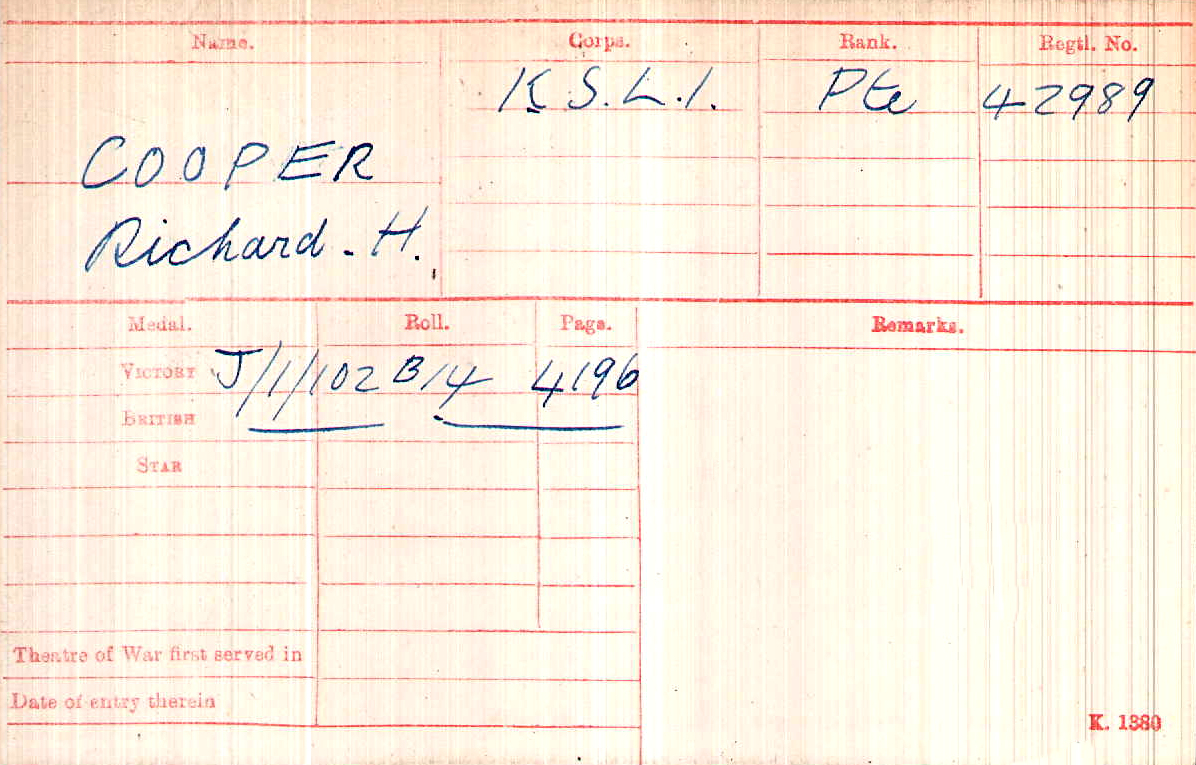 Name. Corps. Rank. Regtl. No.
K.S.L.I. Pte 42989
COOPER
Richard. H.
Medal. Roll. Page. Remarks.
VICTORY J/1/102 B14 4196
BRITISH
STAR
Theatre of War first served in
Date of entry therein
K. 1380